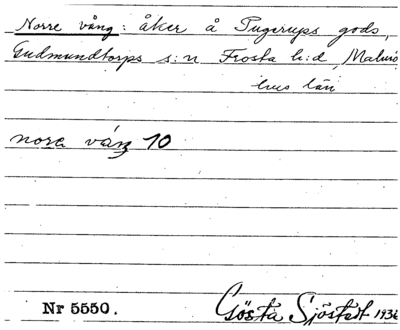 Norre vång: åker å Tugerups gods,
Gudmundtorps s:n Frosta h:d, Malmö
hus län
nora vång 10
Nr 5550. Gösta Sjöstedt 1936